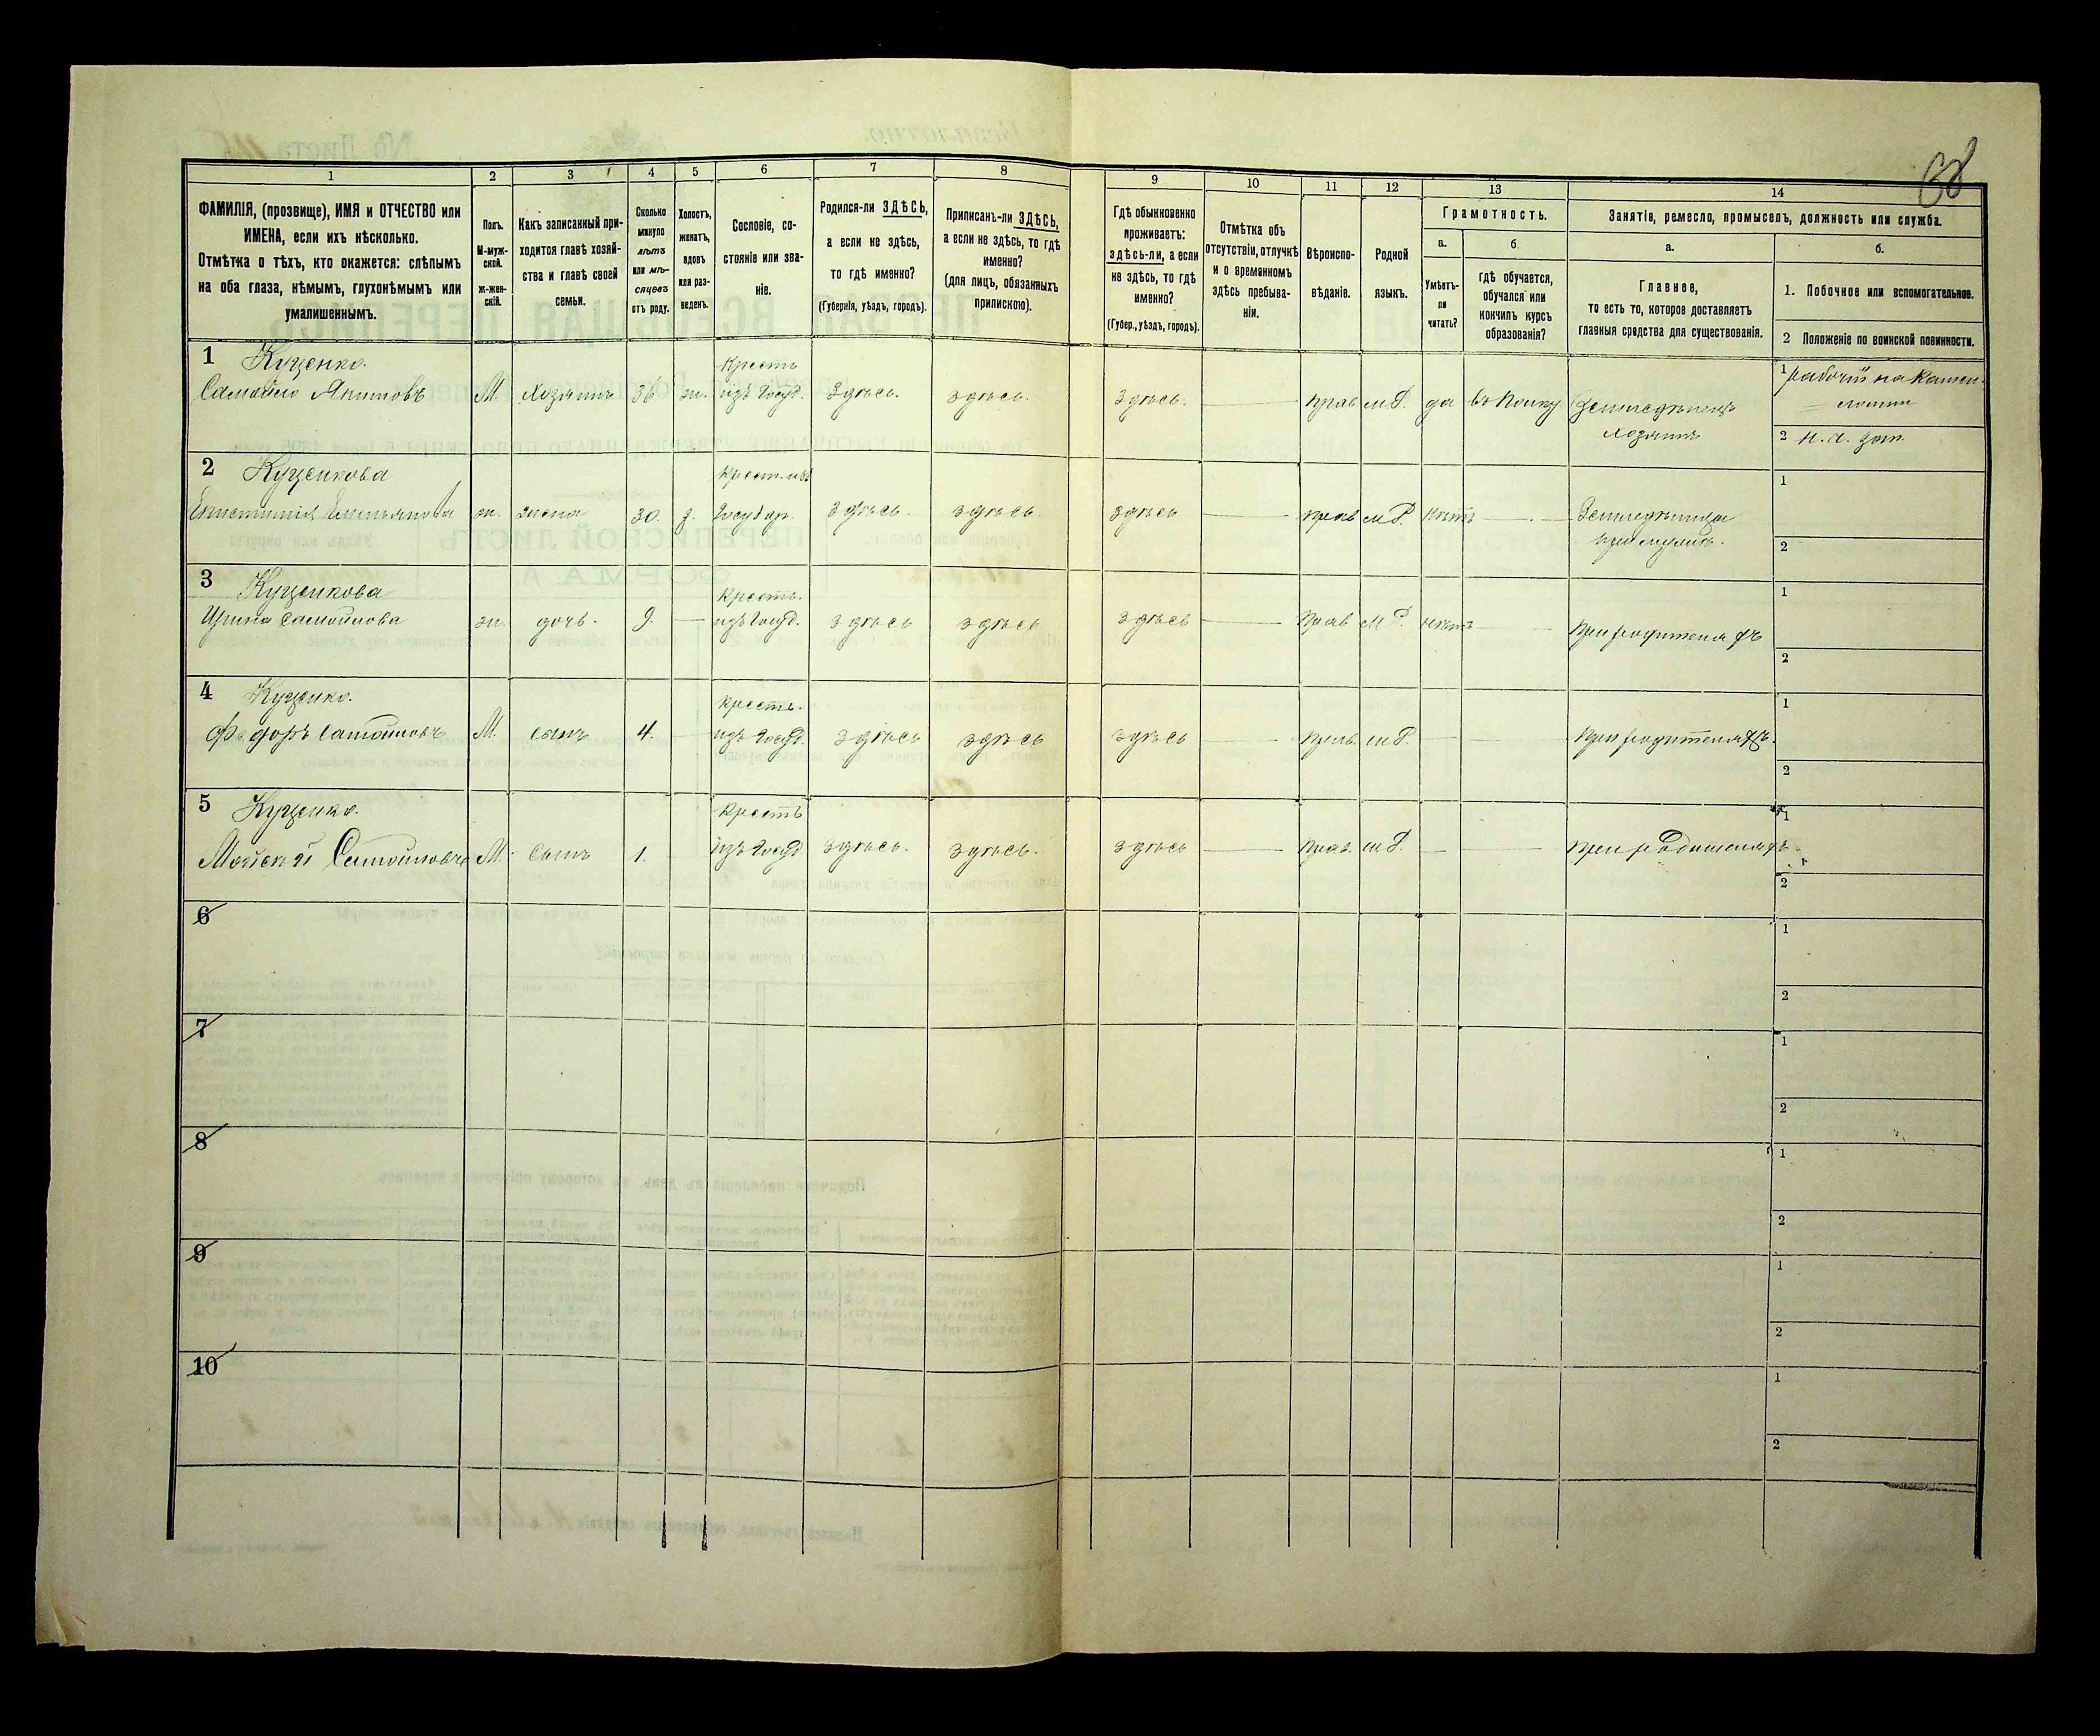 68
1 2 3 4 5 6 7 8 9 10 11 12 13 14
ФАМИЛІЯ, (прозвище), ИМЯ и ОТЧЕСТВО или
ИМЕНА, если ихъ нѣсколько.
Отмѣтка о тѣхъ, кто окажется: слѣпымъ
на оба глаза, нѣмымъ, глухонѣмымъ или
умалишеннымъ.
Полъ.
М-муж-
ской.
Ж-жен-
скій.
Какъ записанный при-
ходится главѣ хозяй-
ства и главѣ своей
семьи.
Сколько
минуло
лѣтъ
или мѣ-
сяцевъ
отъ роду.
Холостъ,
женатъ,
вдовъ
или раз-
веденъ.
Сословіе, со-
стояніе или зва-
ніе.
Родился-ли ЗДѢСЬ,
а если не здѣсь,
то гдѣ именно?
(Губернія, уѣздъ, городъ).
Приписанъ-ли ЗДѢСЬ,
а если не здѣсь, то гдѣ
именно?
(для лицъ, обязанныхъ
припискою).
Гдѣ обыкновенно
проживаетъ:
здѣсь-ли, а если
не здѣсь, то гдѣ
именно?
(Губер., уѣздъ, городъ).
Отмѣтка объ
отсутствіи, отлучкѣ
и о временномъ
здѣсь пребыва-
ніи.
Вѣроиспо-
вѣданіе.
Родной
языкъ.
Грамотность.
а.
Умѣетъ-
ли
читать?
б.
гдѣ обучается,
обучался или
кончилъ курсъ
образованія?
Занятіе, ремесло, промыселъ, должность или служба.
а.
Главное,
то есть то, которое доставляетъ
главныя средства для существованія.
б.
1. Побочное или вспомогательное.
2 Положеніе по воинской повинности.
1 Куценко. Крестъ 1 рабочій на камен-
Самойло Якимовъ М. Хозяинъ 36 ж. изъ Госуд. Здѣсь. здѣсь. здѣсь. прав м.Р. да въ полку Земледѣлецъ
хозяинъ 2 н. о. зап.
2 Куценкова Крест. изъ 1
Емельянова ж. жена 30. з. Государ. здѣсь. здѣсь. здѣсь прав м Р. нѣтъ Земледѣлица
при мужѣ. 2
3 Куценкова Крестъ. 1
Ирина Самойлова ж. дочь. 9. изъ Госуд. здѣсь здѣсь здѣсь прав М Р. нѣтъ при родителяхъ
2
4 Куценко. Крестъ. 1
Федоръ Самойловъ М. сынъ 4. изъ Госуд. здѣсь здѣсь здѣсь прав. м Р. при родителяхъ.
2
5 Куценко. Крестъ 1
Мойсей Самойловъ М. сынъ 1. изъ Госуд здѣсь. здѣсь. здѣсь прав. м Р. при родителяхъ.
2
6 1
2
7 1
2
8 1
2
9 1
2
10 1
2